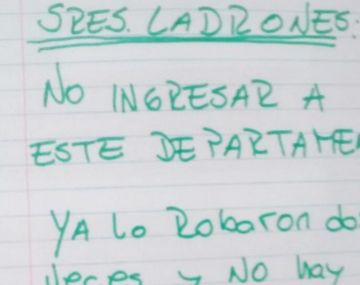 SRES. LADRONES.
NO INGRESAR A
ESTE DEPARTAME
YA Lo Robaron do
veces y NO hay